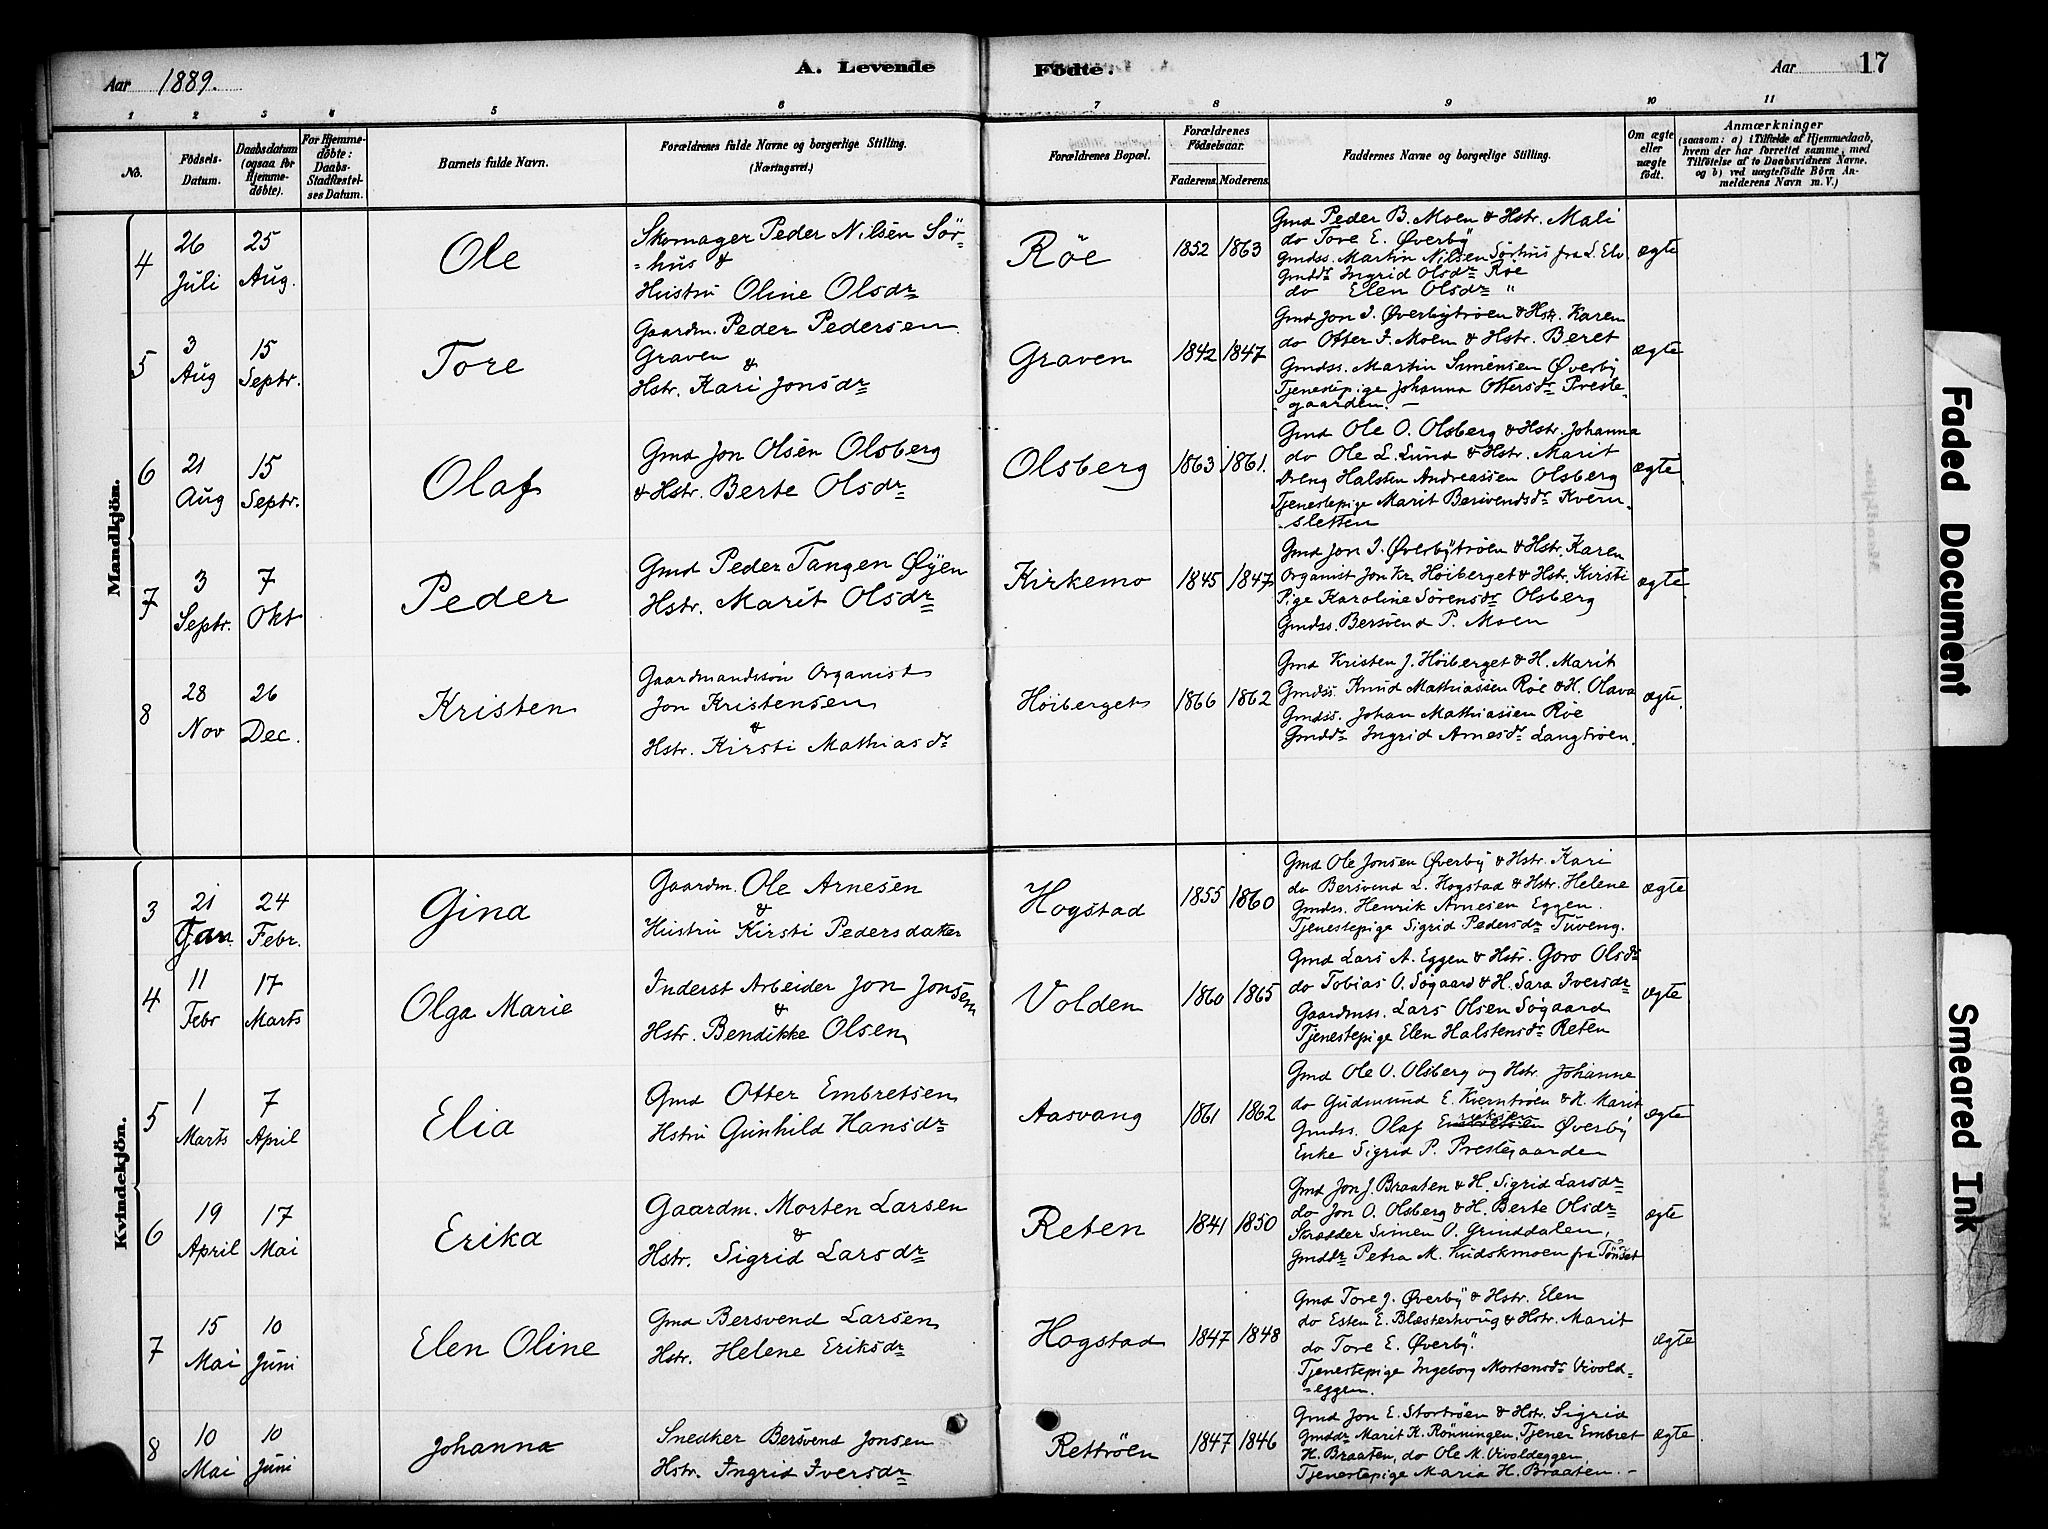 Aar 1889.
A. Levende Födte.
Aar 17
1 2 3 4 5 6 7 8 9 10 11
No.
Födsels-Datum.
Daabsdatum (ogsaa for Hjemme-döbte).
For Hjemme-döbte: Daabs-Stadfæstel-ses Datum.
Barnets fulde Navn.
Forældrenes fulde Navne og borgerlige Stilling.
(Næringsvei.)
Forældrenes Bopæl.
Forældrenes Födselsaar.
Faderens. Moderens.
Faddernes Navne og borgerlige Stilling.
Om ægte eller uægte födt.
Anmærkninger
(saasom: a) i Tilfælde af Hjemmedaab,
hvem der har forrettet samme, med
Tilföielse af to Daabsvidners Navne.
og b) ved uægtefödte Börn An-
melderens Navn m. V.)
Mandkjön.
4
26 Juli
25 Aug.
Ole
Skomager Peder Nilsen Sör-
-hus &
Hustru Oline Olsdr
Röe
1852 1863
Gmd Peder B. Moen & Hstr. Mali
do Tore E. Øverby
Gmdss. Martin Nilsen Sörhus fra L. Elv.
Gmddr Ingrid Olsdr Röe
do Elen Olsdr "
ægte
5
3 Aug
15 Septr.
Tore
Gaardm. Peder Pedersen
Graven
&
Hstr. Kari Jonsdr
Graven
1842 1847
Gmd Jon I. Øverbytröen & Hstr. Karen
do Otter J. Moen & Hstr. Beret
Gmdss. Martin Simensen Øverby
Tjenestepige Johanna Ottersdr Preste-
-gaarden. —
ægte
6
21 Aug
15 Septr.
Olaf
Gmd Jon Olsen Olsberg
& Hstr. Berte Olsdr
Olsberg
1863 1861.
Gmd Ole O. Olsberg & Hstr. Johanna
do Ole L. Lund & Hstr. Marit
Dreng Halsten Andreassen Olsberg
Tjenestepige Marit Bersvendsdr Kvern-
-sletten
ægte.
7
3 Septr.
7 Okt
Peder
Gmd Peder Tangen Øyen
Hstr. Marit Olsdr
Kirkemo
1845 1847
Gmd Jon I. Øverbytröen & Hstr. Karen
Organist Jon Kr. Höiberget & Hstr. Kirsti
Pige Karoline Sörensdr Olsberg
Gmdss. Bersvend P. Moen
ægte.
8
28 Nov
26 Dec.
Kristen
Gaardmandssön Organist
Jon Kristensen
&
Hstr. Kirsti Mathiasdr
Höiberget
1866 1862
Gmd Kristen J. Höiberget & H. Marit
Gmdss. Knud Mathiassen Röe & H. Olava
Gmdss. Johan Mathiassen Röe
Gmddr Ingrid Arnesdr Langtröen.
ægte.
Kvindekjön.
3
21 Jan
24 Febr.
Gina
Gaardm. Ole Arnesen
&
Hustru Kirsti Pedersdatter
Hogstad
1855 1860
Gmd Ole Jonsen Øverby & Hstr. Kari
do Bersvend L. Hogstad & Hstr. Helene
Gmdss. Henrik Arnesen Eggen.
Tjenestepige Sigrid Pedersdr Tuveng.
ægte
4
11 Febr
17 Marts
Olga Marie
Inderst Arbeider Jon Jonsen
&
Hstr. Bendikke Olsen
Volden
1860 1865
Gmd Lars A. Eggen & Hstr. Goro Olsdr
do Tobias O. Sögaard & H. Sara Iversdr
Gaardmss. Lars Olsen Sögaard
Tjenestepige Elen Halstensdr Reten
ægte
5
1 Marts
7 April
Elia
Gmd Otter Embretsen
Hstru Gunhild Hansdr
Aasvang
1861 1862
Gmd Ole O. Olsberg og Hstr. Johanne
do Gudmund E. Kverntröen & H. Marit
Gmdss. Olaf Øverby
Enke Sigrid P. Prestegaarden
ægte
6
19 April
17 Mai
Erika
Gaardm. Morten Larsen
&
Hstr. Sigrid Larsdr
Reten
1841 1850
Gmd Jon J. Braaten & H. Sigrid Larsdr
do Jon O. Olsberg & H. Berte Olsdr
Skrædder Simen O. Grinddalen,
Gmddr Petra M. Kudskmoen fra Tönset
ægte
7
15 Mai
10 Juni
Elen Oline
Gmd Bersvend Larsen
Hstr. Helene Eriksdr
Hogstad
1847 1848
Gmd Tore J. Øverby & Hstr. Elen
do Esten E. Blæsterhoug & Hstr. Marit
do Tore E. Øverby.
Tjenestepige Ingeborg Mortensdr Vivold-
-eggen.
ægte
8
10 Mai
10 Juni
Johanna
Snedker Bersvend Jonsen
Hstr. Ingrid Iversdr
Rettröen
1847 1846
Gmd Jon E. Stortröen & Hstr. Sigrid
Gmddr Marit K. Rönningen, Tjener Embret
H. Braaten, do Ole M. Vivoldeggen,
Tjenestepige Maria H. Braaten. —
ægte.
Faded Document
Smeared Ink